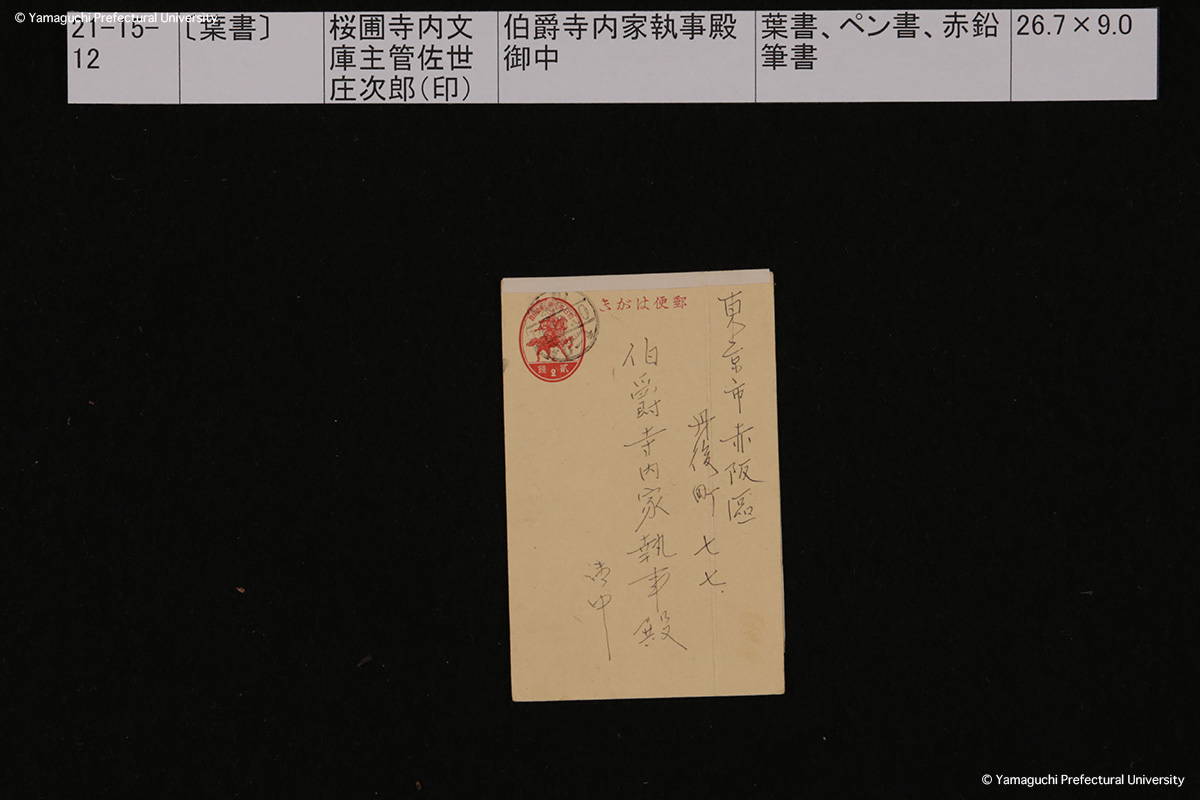 © Yamaguchi Prefectural University
21-15-
12
〔葉書〕
桜圃寺内文
庫主管佐世
庄次郎（印）
伯爵寺内家執事殿
御中
葉書、ペン書、赤鉛
筆書
26.7×9.0
郵便はがき
貳2錢
東京市赤阪區
丹後町七七
伯爵寺内家執事殿
御中
© Yamaguchi Prefectural University